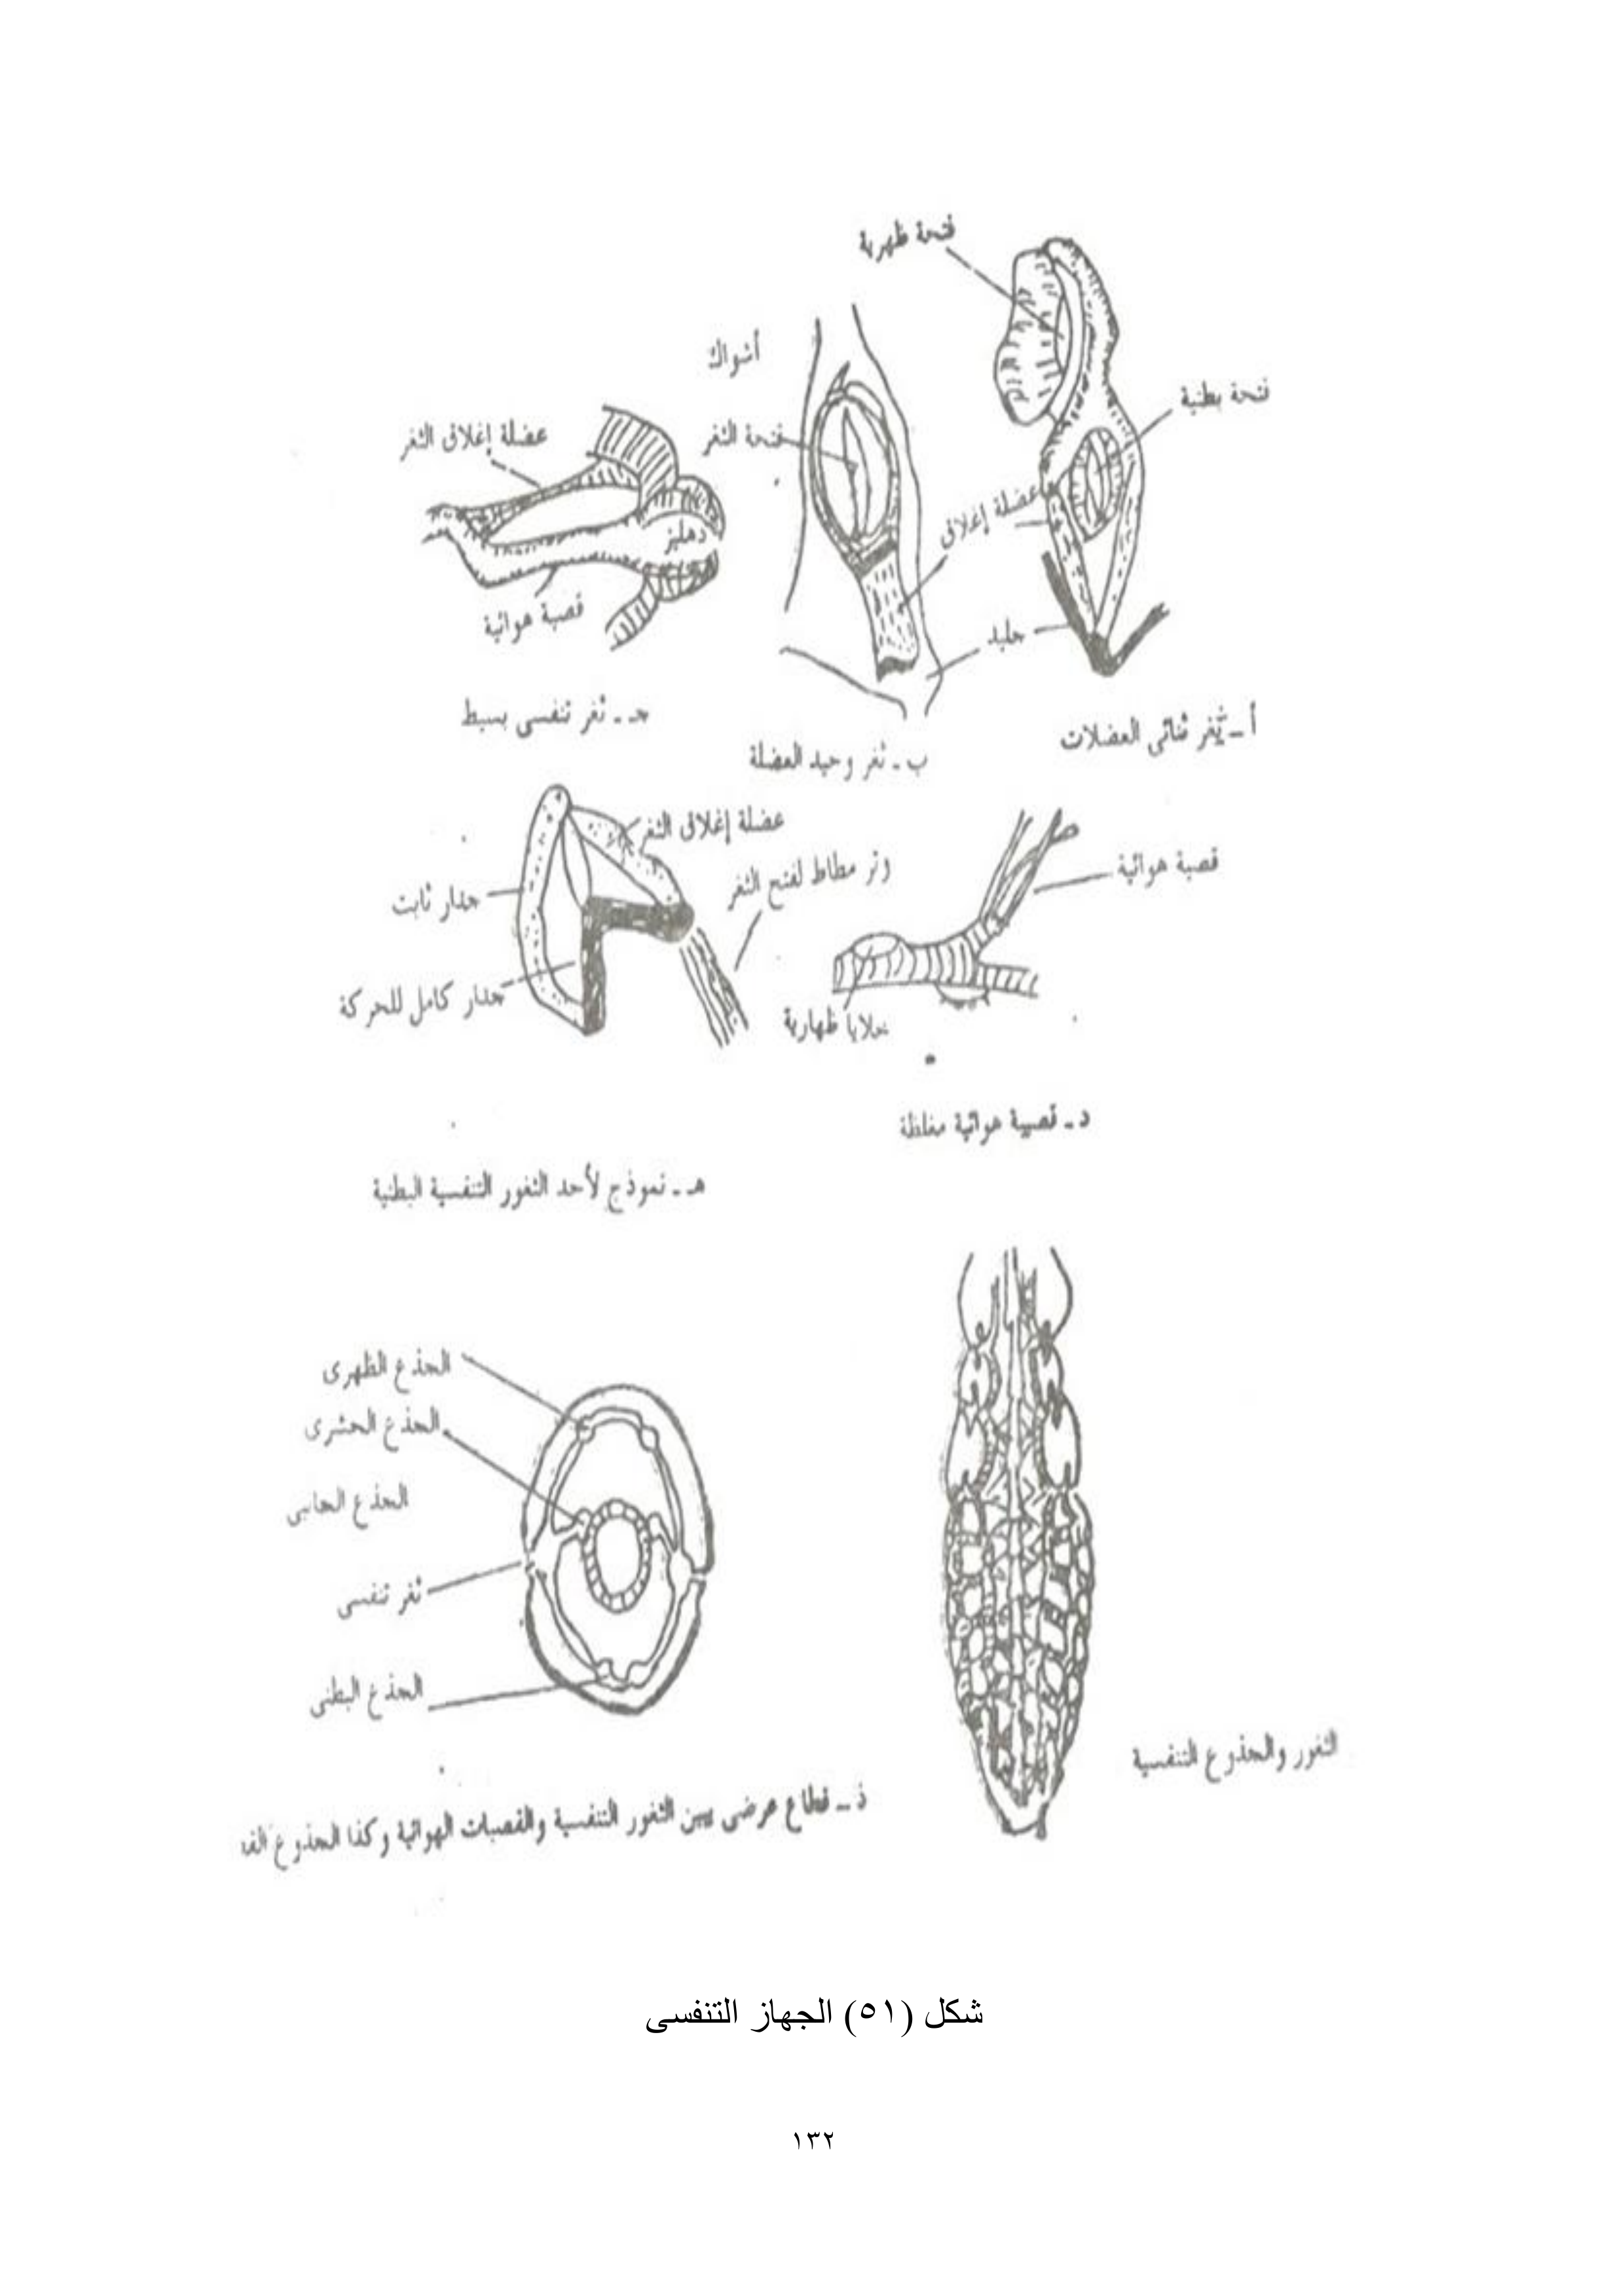 فتحة ظهرية
أشواك
فتحة بطنية
عضلة إغلاق الثغر
فتحة الثغر
عضلة إغلاق
دهليز
قصبة هوائية
جليد
أ ـ ثغر ثنائى العضلات
ب ـ ثغر وحيد العضلة
جـ ـ ثغر تنفسى بسيط
عضلة إغلاق الثغر
وتر مطاط لفتح الثغر
قصبة هوائية
جدار ثابت
جدار كامل للحركة
خلايا ظهارية
د ـ قصيبة هوائية مغلظة
هـ ـ نموذج لأحد الثغور التنفسية البطنية
الجذع الظهرى
الجذع الحشرى
الجذع الجانبى
ثغر تنفسى
الجذع البطنى
الثغور والجذوع التنفسية
ذ ـ قطاع عرضى يبين الثغور التنفسية والقصبات الهوائية وكذا الجذوع
شكل (٥١) الجهاز التنفسى
١٣٢